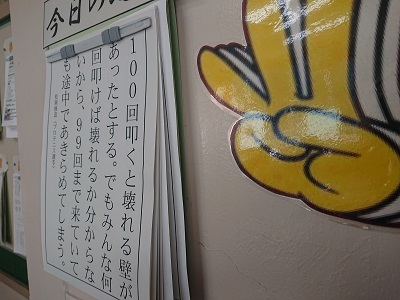 今日の
100回叩くと壊れる壁が
あったとする。でもみんな何
回叩けば壊れるか分からな
いから、99回まで来ていて
も途中であきらめてしまう。